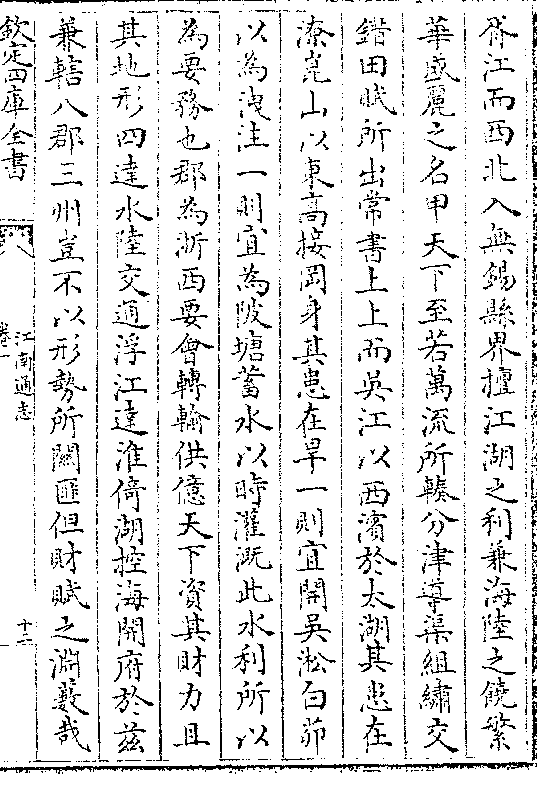 胥江而西北入無錫縣界擅江湖之利兼海陸之饒繁
華盛麗之名甲天下至若萬流所輳分津導渠組繡交
錯田賦所出常書上上而吳江以西濱於太湖其患在
潦崑山以東高接岡身其患在旱一則宜開吳淞白茆
以為洩注一則宜為陂塘蓄水以時灌溉此水利所以
為要務也郡為浙西要會轉輸供億天下資其財力且
其地形四達水陸交通浮江達淮倚湖控海開府於茲
兼轄八郡三州豈不以形勢所關匪但財賦之淵藪哉
欽定四庫全書
江南通志
卷一
十二